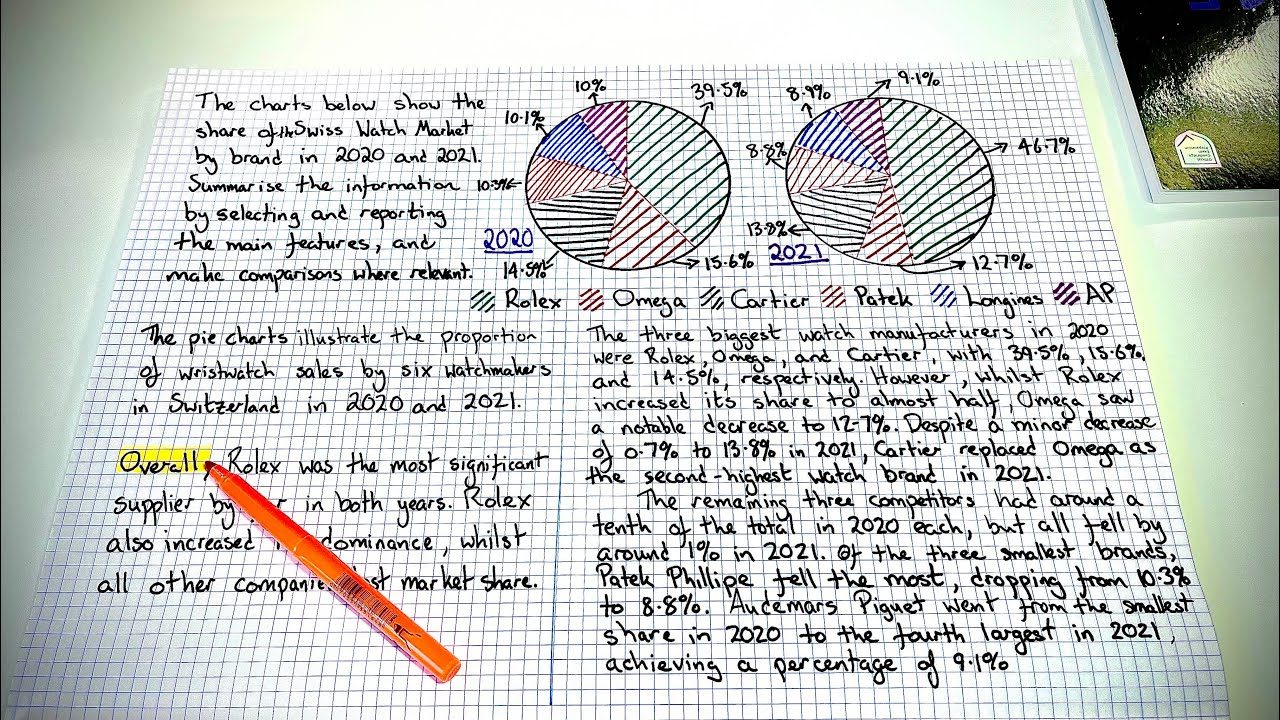 The charts below show the
share of the Swiss Watch Market
by brand in 2020 and 2021.
Summarise the information
by selecting and reporting
the main features, and
make comparisons where relevant.
10%
39.5%
10.1%
10.3%
2020
14.5%
15.6%
9.1%
8.9%
46.7%
8.8%
13.8%
2021
12.7%
Rolex Omega Cartier Patek Longines AP
The pie charts illustrate the proportion
of wristwatch sales by six watchmakers
in Switzerland in 2020 and 2021.
Overall, Rolex was the most significant
supplier by in both years. Rolex
also increased dominance, whilst
all other companies lost market share.
The three biggest watch manufacturers in 2020
were Rolex, Omega, and Cartier, with 39.5%, 15.6%,
and 14.5%, respectively. However, whilst Rolex
increased it's share to almost half, Omega saw
a notable decrease to 12.7%. Despite a minor decrease
of 0.7% to 13.8% in 2021, Cartier replaced Omega as
the second-highest watch brand in 2021.
The remaining three competitors had around a
tenth of the total in 2020 each, but all fell by
around 1% in 2021. Of the three smallest brands,
Patek Phillipe fell the most, dropping from 10.3%
to 8.8%. Audemars Piguet went from the smallest
share in 2020 to the fourth largest in 2021,
achieving a percentage of 9.1%